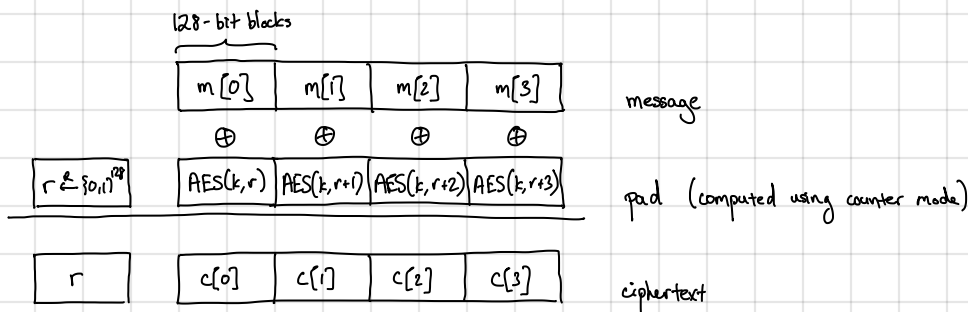 128-bit blocks
m[0] m[1] m[2] m[3] message
⊕ ⊕ ⊕ ⊕
r ←ᴿ {0,1}¹²⁸ AES(k,r) AES(k,r+1) AES(k,r+2) AES(k,r+3) pad (computed using counter mode)
r c[0] c[1] c[2] c[3] ciphertext